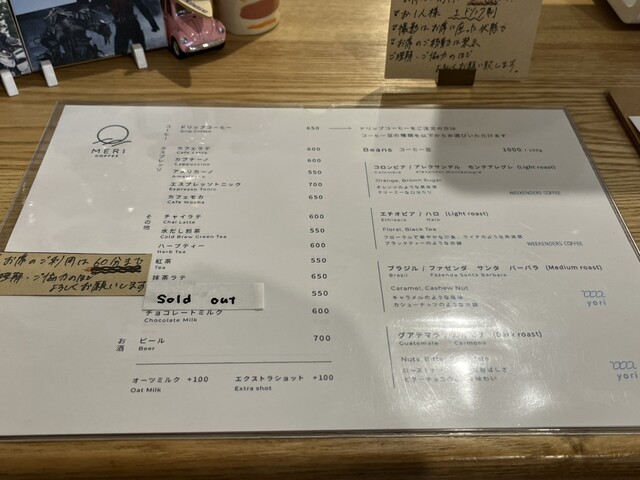 お一人様 1ドリンク制
MERI
COFFEE
コーヒー
ドリップコーヒー 650
Drip Coffee
ドリップコーヒーをご注文の方は
コーヒー豆の種類を以下からお選びいただけます
エスプレッソ
カフェラテ 600
Cafe Latte
カプチーノ 600
Cappuccino
アメリカーノ 550
Americano
エスプレッソトニック 700
Espresso Tonic
カフェモカ 650
Cafe Mocha
その他
チャイラテ 600
Chai Latte
水だし煎茶 550
Cold Brew Green Tea
ハーブティー 600
Herb Tea
紅茶 550
Tea
抹茶ラテ 650
Sold out 550
チョコレートミルク 600
Chocolate Milk
お酒
ビール 700
Beer
オーツミルク +100
Oat Milk
エクストラショット +100
Extra shot
お席のご利用は60分まで
ご理解・ご協力のほど
よろしくお願いします
Beans コーヒー豆 1000 / 100g
コロンビア / アレクサンデル モンテアレグレ (Light roast)
Colombia Alexander Montealegre
Orange, Brown Sugar
オレンジのような果実感
クリーミーな口当たり
WEEKENDERS COFFEE
エチオピア / ハロ (Light roast)
Ethiopia Halo
Floral, Black Tea
WEEKENDERS COFFEE
ブラジル / ファゼンダ サンタ バーバラ (Medium roast)
Brazil Fazenda Santa Barbara
Caramel, Cashew Nut
キャラメルのような風味
カシューナッツのような
yori
グアテマラ (Dark roast)
Guatemala Carmona
Nuts,
yori